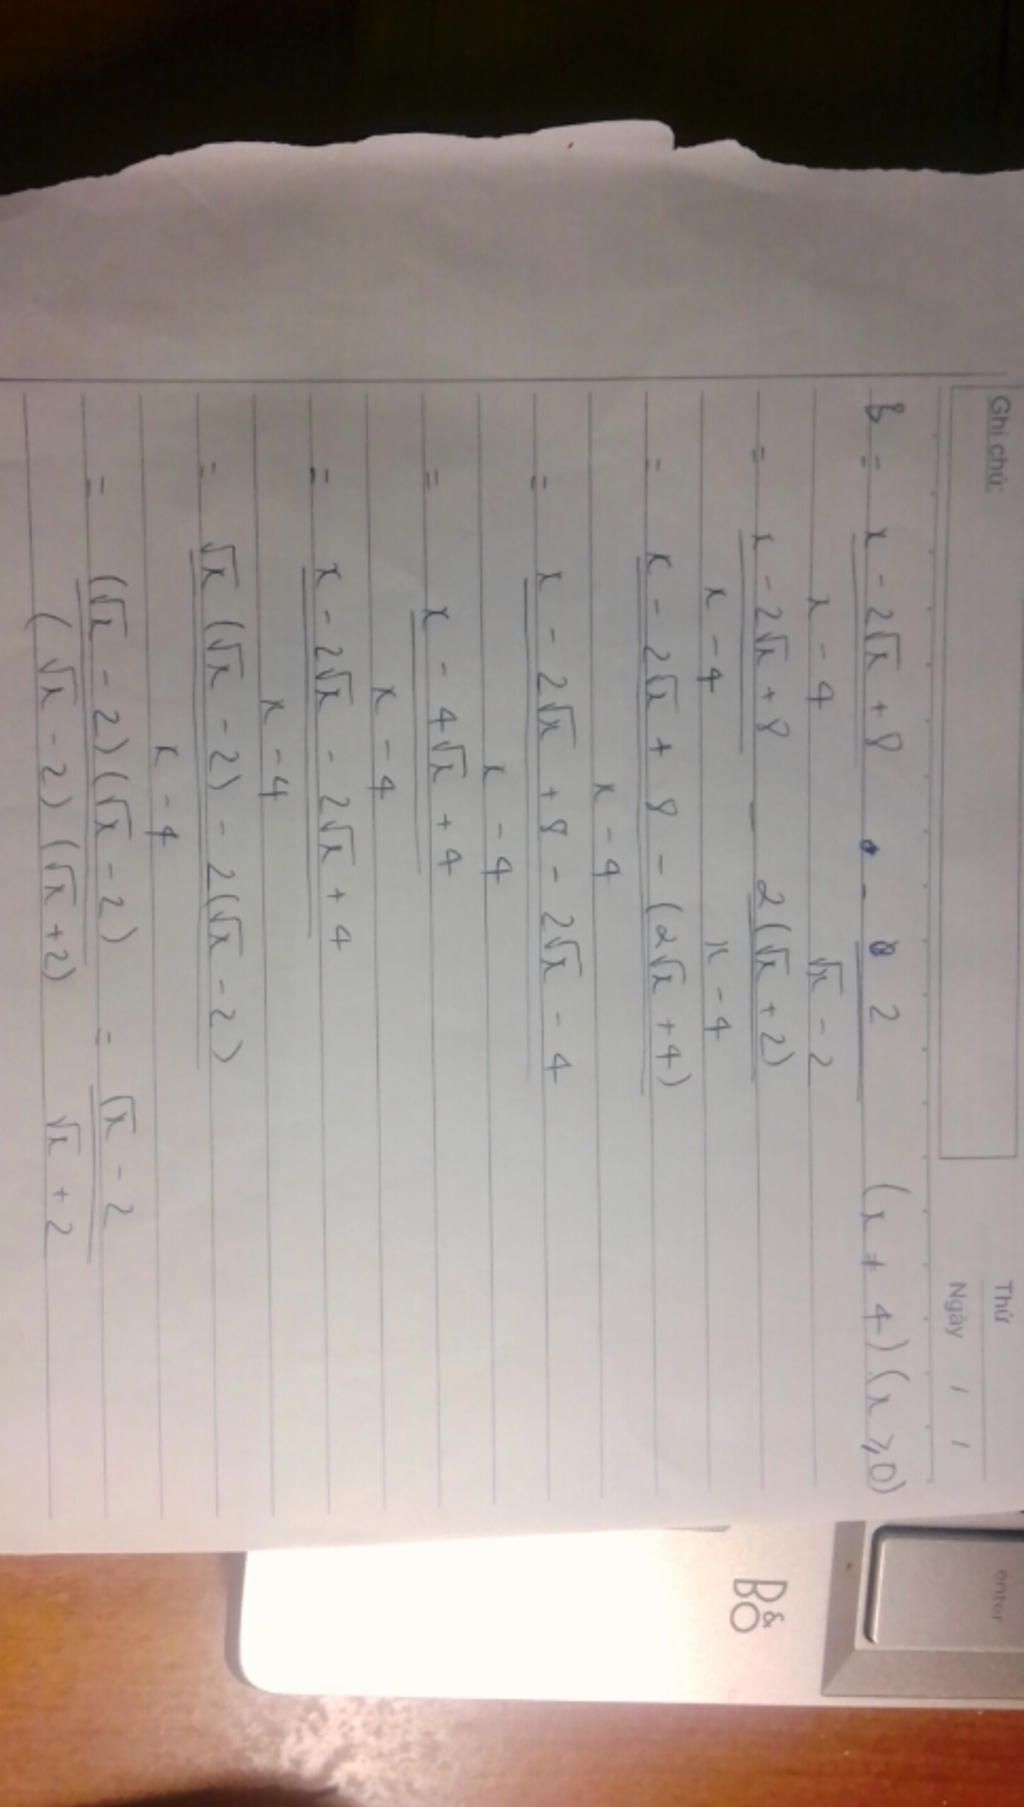 Ghi chú:
Thứ
Ngày / /
B = x - 2√x + 8 / x - 4 - 2 / √x - 2 (x ≠ 4) (x ⩾ 0)
= x - 2√x + 8 / x - 4 - 2(√x + 2) / x - 4
= x - 2√x + 8 - (2√x + 4) / x - 4
= x - 2√x + 8 - 2√x - 4 / x - 4
= x - 4√x + 4 / x - 4
= x - 2√x - 2√x + 4 / x - 4
= √x (√x - 2) - 2(√x - 2) / x - 4
= (√x - 2)(√x - 2) / (√x - 2)(√x + 2) = √x - 2 / √x + 2
enter
B&O